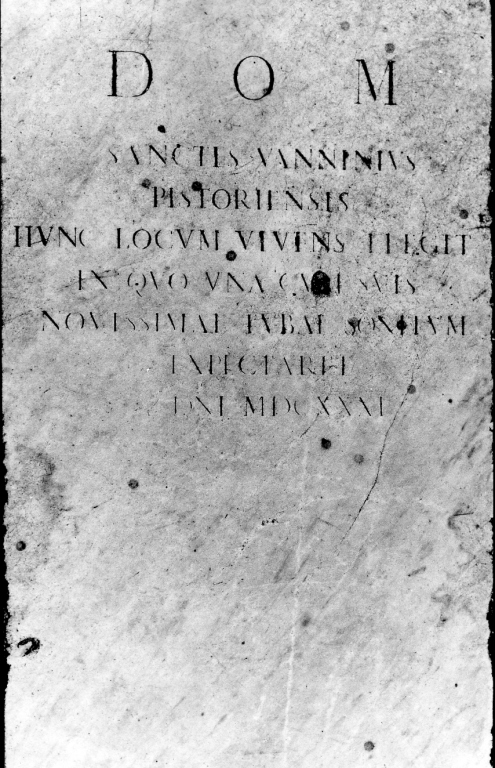 D O M
SANCTES VANNINIVS
PISTORIENSIS
HVNC LOCVM VIVENS ELEGIT
IN QVO VNA CVM SVIS
NOVISSIMAE TVBAE SONITVM
EXPECTARET
DNI MDCXXXI